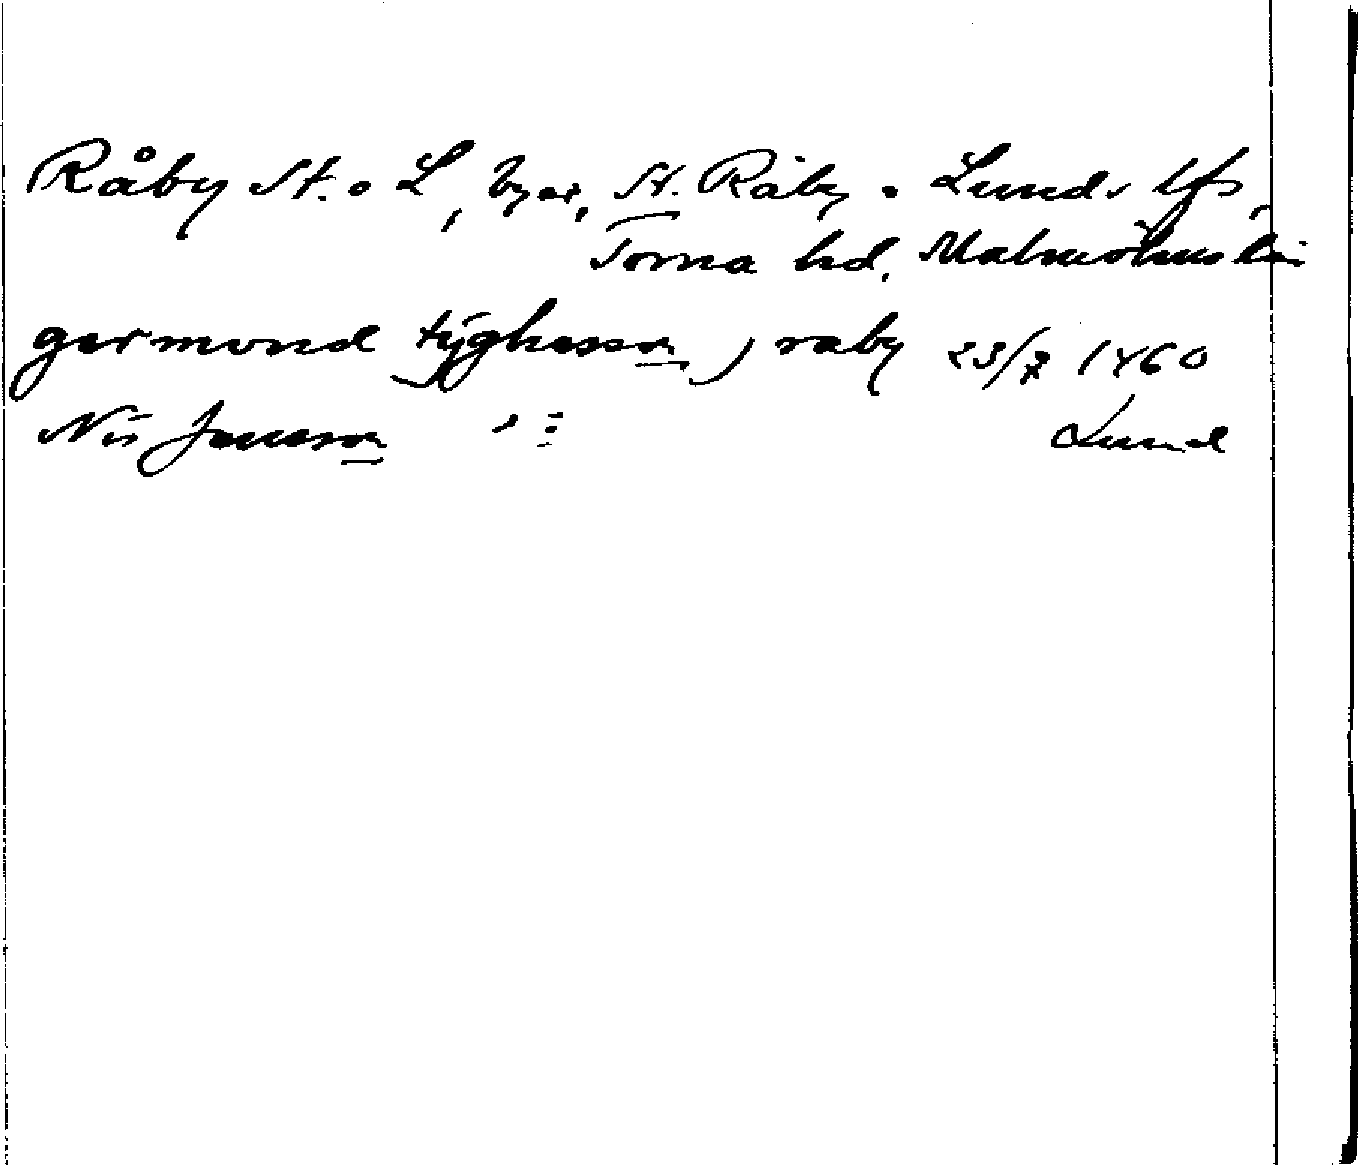 Råby St. o L, byar, St. Råby o Lunds lfs,
Torna hd, Malmöhus län
germund tyghesson j raby 23/7 1460
Nis Jenesson " " Lund